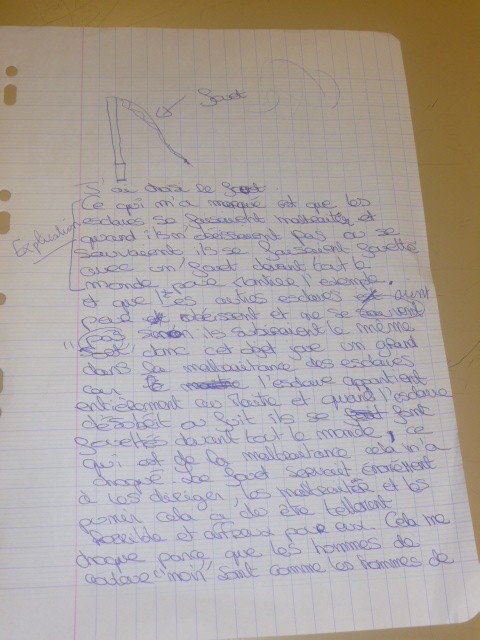 fouet
J'ai choisi le fouet.
Ce qui m'a marqué est que les
esclaves se faisaient maltraiter et
quand ils n'obéissaient pas ou se
Explication
sauvaient ils se faisaient fouetté
avec un fouet devant tout le
monde pour montrer l'exemple.
et que les autres esclaves aient
peur obéissent et ne se sauvent
"pas sinon ils subiraient le même
sort" donc cet objet joue un grand
dans la maltraitance des esclaves
car l'esclave appartient
entièrement au Maître et quand l'esclave
désobéit ou fuit ils se font
fouettés devant tout le monde, ce
qui est de la maltraitance cela m'a
choqué. Le fouet servait énormément
à les diriger, les maltraités et les
punir cela a du être tellement
horrible et affreux pour eux. Cela me
choque parce que les hommes de
couleur "noir" sont comme les hommes de